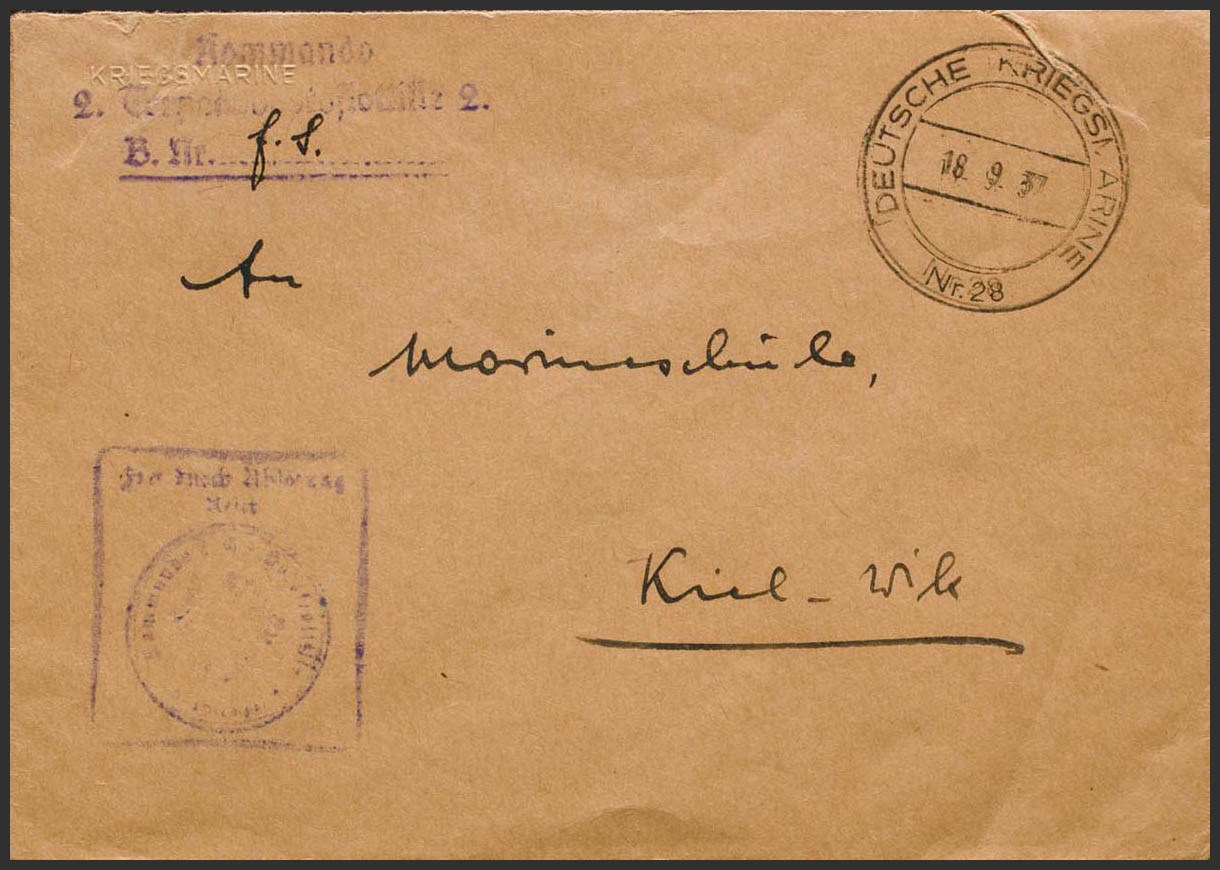 Kommando
KRIEGSMARINE
2. 2.
B. Nr. f. S.
DEUTSCHE KRIEGSMARINE
18. 9. 37
Nr. 28
An
Marineschule,
Frei durch Ablösung
Reich
Kommando
Kiel - Wik